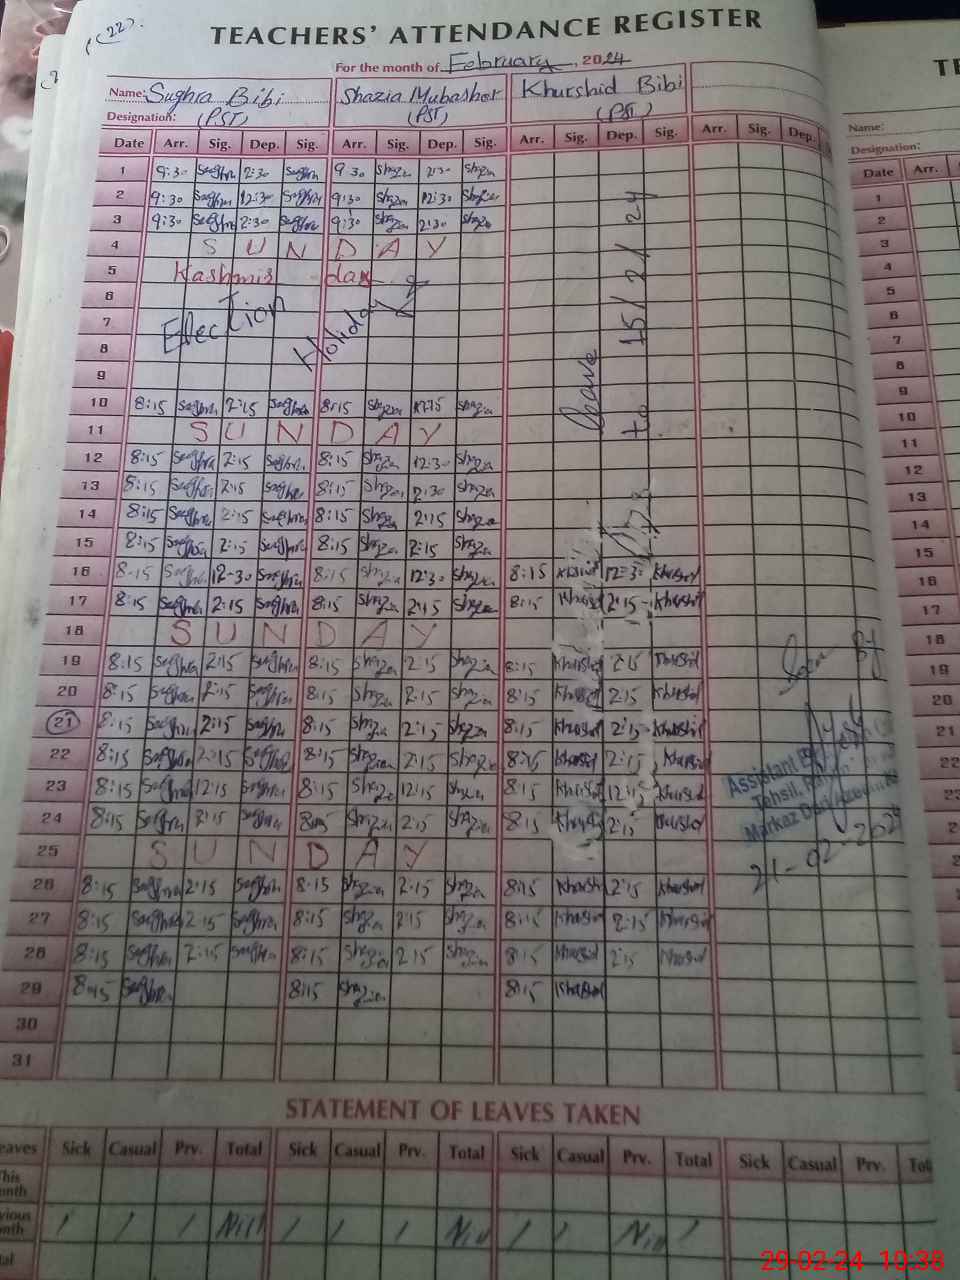 (22)
TEACHERS' ATTENDANCE REGISTER
For the month of February, 2024
Name: Sughra Bibi Shazia Mubasher Khurshid Bibi
Designation: (PST) (PST) (PST)
Date Arr. Sig. Dep. Sig. Arr. Sig. Dep. Sig. Arr. Sig. Dep. Sig. Arr. Sig. Dep.
1 9:30 Saghra 2:30 Saghra 9:30 Shazia 2:30 Shazia
2 9:30 Saghra 12:30 Saghra 9:30 Shazia 12:30 Shazia
3 9:30 Saghra 2:30 Saghra 9:30 Shazia 2:30 Shazia
4 SUNDAY
5 Kashmir day
6
7 Election Holiday
8
9
leave to 15/2/24
10 8:15 Saghra 2:15 Saghra 8:15 Shazia Shazia
11 SUNDAY
12 8:15 Saghra 2:15 Saghra 8:15 Shazia 12:30 Shazia
13 8:15 Saghra 2:15 Saghra 8:15 Shazia 2:30 Shazia
14 8:15 Saghra 2:15 Saghra 8:15 Shazia 2:15 Shazia
15 8:15 Saghra 2:15 Saghra 8:15 Shazia 2:15 Shazia
16 8:15 Saghra 12-30 Saghra 8:15 Shazia 12:30 Shazia 8:15 Khurshid 12:30 Khurshid
17 8:15 Saghra 2:15 Saghra 8:15 Shazia 2:15 Shazia 8:15 Khurshid 2:15 Khurshid
18 SUNDAY
19 8:15 Saghra 2:15 Saghra 8:15 Shazia 2:15 Shazia 8:15 Khurshid 2:15 Khurshid
20 8:15 Saghra 2:15 Saghra 8:15 Shazia 2:15 Shazia 8:15 Khurshid 2:15 Khurshid
21 8:15 Saghra 2:15 Saghra 8:15 Shazia 2:15 Shazia 8:15 Khurshid 2:15 Khurshid
22 8:15 Saghra 2:15 Saghra 8:15 Shazia 2:15 Shazia 8:15 Khurshid 2:15 Khurshid
23 8:15 Saghra 12:15 Saghra 8:15 Shazia 12:15 Shazia 8:15 Khurshid 12:15 Khurshid
24 8:15 Saghra 2:15 Saghra 8:15 Shazia 2:15 Shazia 8:15 Khurshid 2:15 Khurshid
25 SUNDAY
26 8:15 Saghra 2:15 Saghra 8:15 Shazia 2:15 Shazia 8:15 Khurshid 2:15 Khurshid
27 8:15 Saghra 2:15 Saghra 8:15 Shazia 2:15 Shazia 8:15 Khurshid 2:15 Khurshid
28 8:15 Saghra 2:15 Saghra 8:15 Shazia 2:15 Shazia 8:15 Khurshid 2:15 Khurshid
29 8:15 Saghra 8:15 Shazia 8:15 Khurshid
30
31
Seen By
Assistant
Tehsil,
Markaz
21-02-2024
STATEMENT OF LEAVES TAKEN
eaves Sick Casual Prv. Total Sick Casual Prv. Total Sick Casual Prv. Total Sick Casual Prv. Tot
This
onth
vious
onth / / / Nill / / / Nill / / Nill /
tal
Name:
Designation:
Date Arr.
1
2
3
4
5
6
7
8
9
10
11
12
13
14
15
16
17
18
19
20
21
22
23
24
29-02-24 10:38